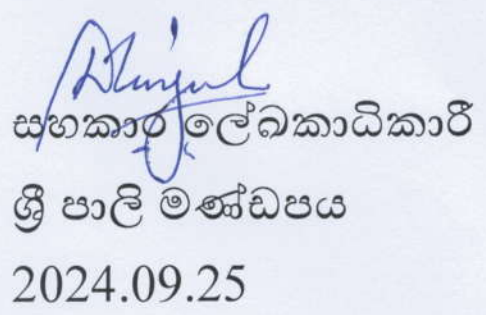 සහකාර ලේඛකාධිකාරී
ශ්‍රී පාලි මණ්ඩපය
2024.09.25